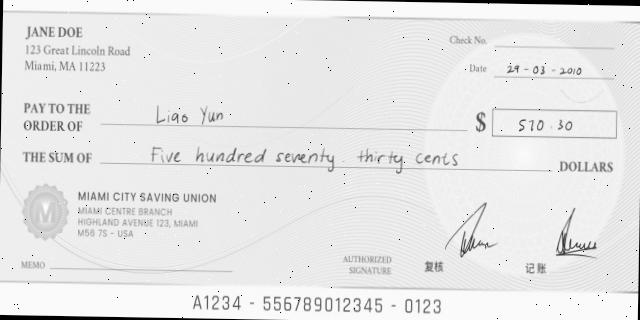 JANE DOE
123 Great Lincoln Road
Miami, MA 11223
Check No.
Date 29-03-2010
PAY TO THE
ORDER OF Liao Yun
$ 570.30
THE SUM OF Five hundred seventy. thirty cents DOLLARS
MIAMI CITY SAVING UNION
MIAMI CENTRE BRANCH
HIGHLAND AVENUE 123, MIAMI
M56 7S - USA
MEMO
AUTHORIZED
SIGNATURE
复核
记账
A1234 - 556789012345 - 0123